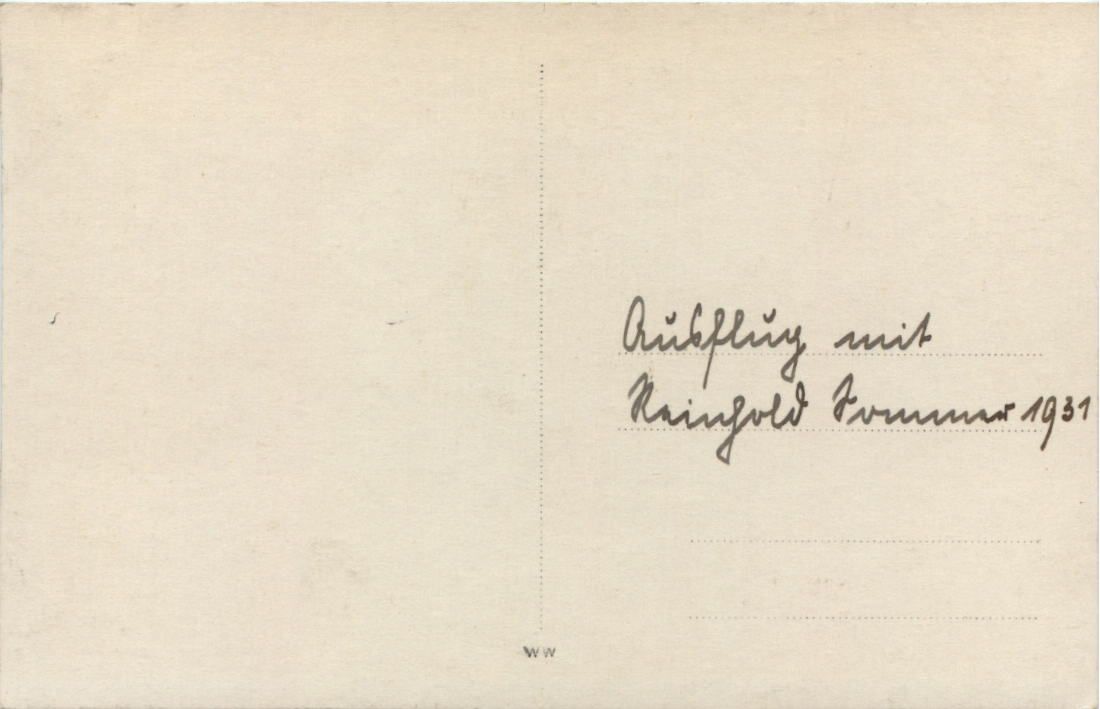 Ausflug mit
Reinhold Sommer 1931
WW